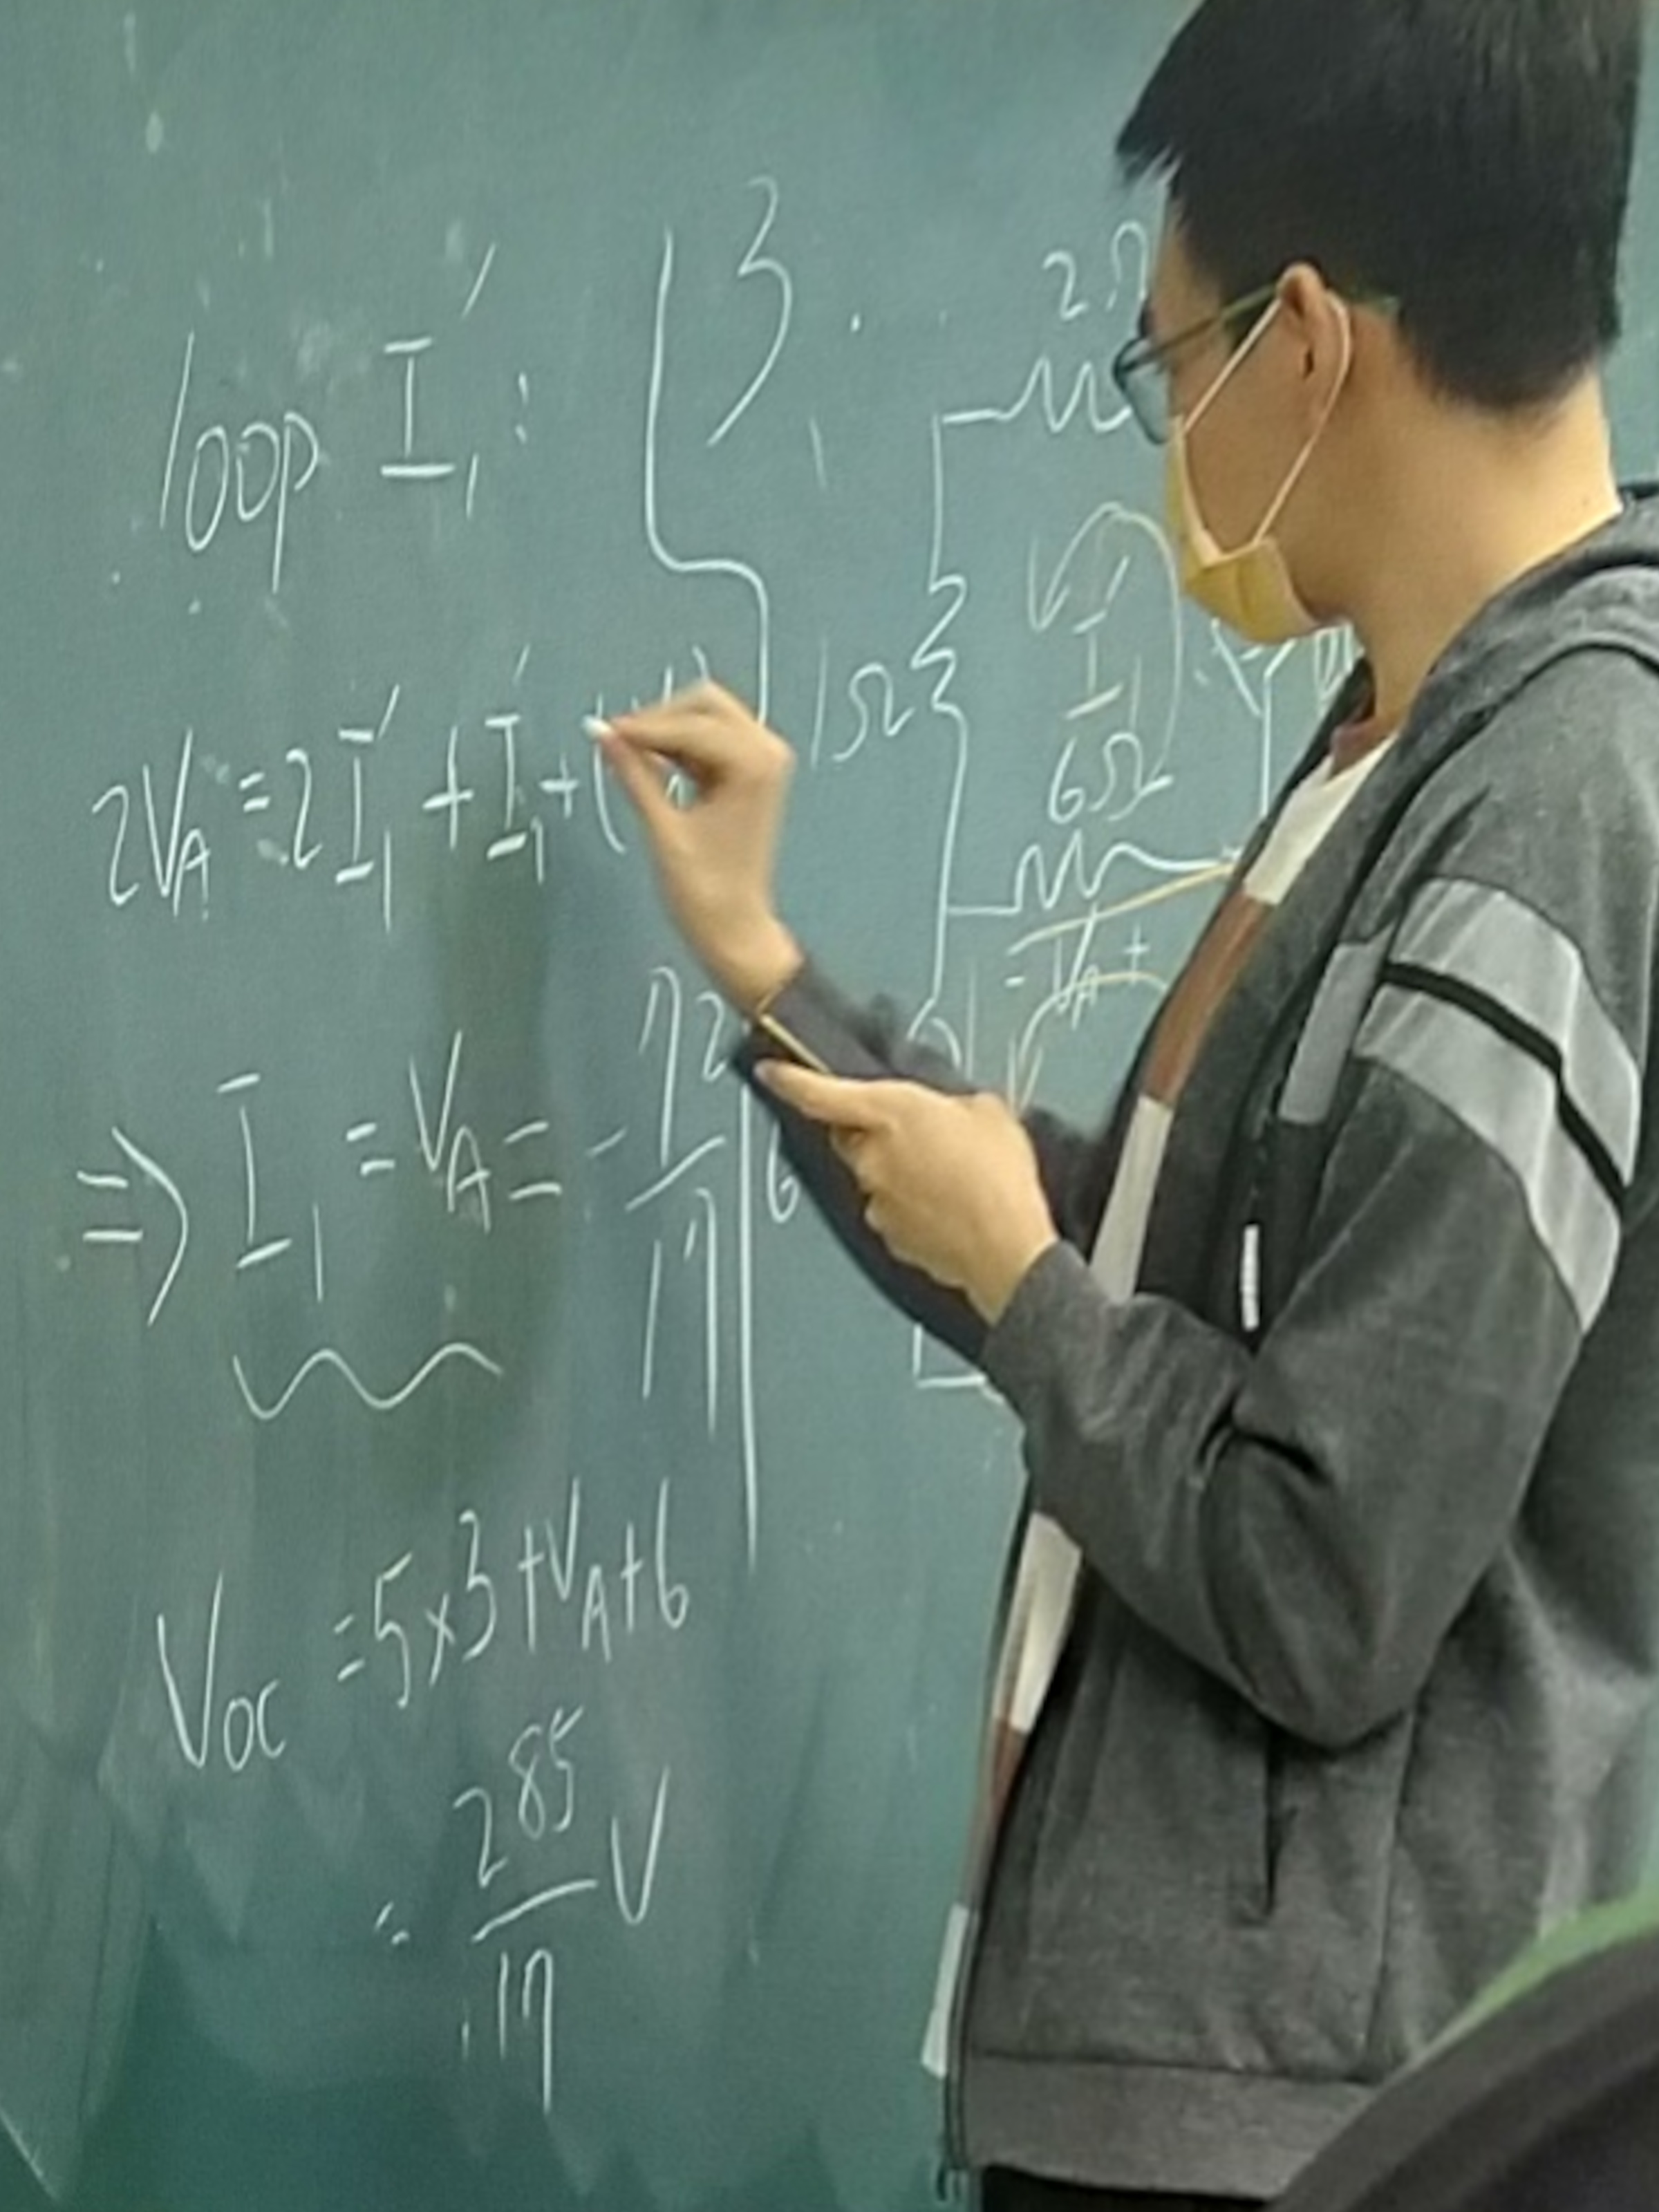 loop I₁' :
2V_A = 2I₁' + I₁' + (
⇒ I₁ = V_A = - 72/17
V_oc = 5×3 + V_A + 6
= 285/17 V
3.
2Ω
I₁'
1Ω
6Ω
- V_A +
6